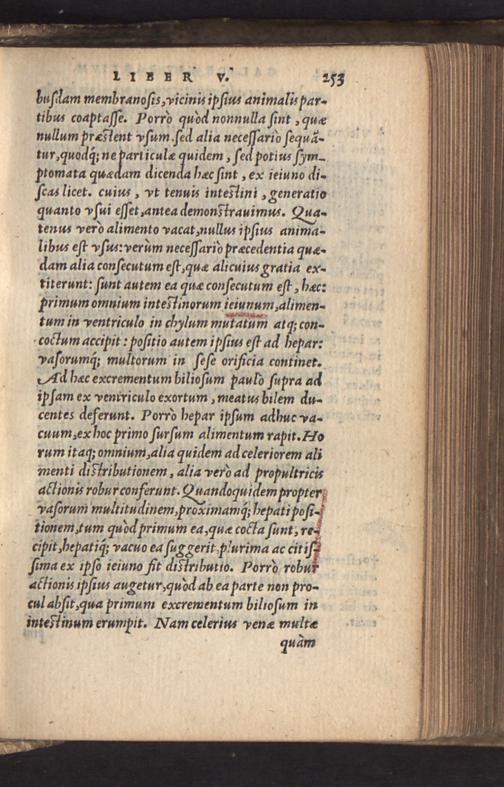 LIBER V. 253
busdam membranosis, vicinis ipsius animalis par-
tibus coaptasse. Porrò quòd nonnulla sint, quæ
nullum præstent vsum. sed alia necessariò sequã-
tur, quodq́; ne particulæ quidem, sed potius sym-
ptomata quædam dicenda hæc sint, ex ieiuno di-
scas licet. cuius, vt tenuis intestini, generatio
quanto vsui esset, antea demonstrauimus. Qua-
tenus verò alimento vacat, nullus ipsius anima-
libus est vsus: verùm necessariò præcedentia quæ-
dam alia consecutum est, quæ alicuius gratia ex-
titerunt: sunt autem ea quæ consecutum est, hæc:
primum omnium intestinorum ieiunum, alimen-
tum in ventriculo in chylum mutatum atq; con-
coctum accipit: positio autem ipsius est ad hepar:
vasorumq́; multorum in sese orificia continet.
Ad hæc excrementum biliosum paulò supra ad
ipsam ex ventriculo exortum, meatus bilem du-
centes deferunt. Porrò hepar ipsum adhuc va-
cuum, ex hoc primo sursum alimentum rapit. Ho
rum itaq; omnium, alia quidem ad celeriorem ali
menti distributionem, alia verò ad propultricis
actionis robur conferunt. Quandoquidem propter
vasorum multitudinem, proximamq́; hepati posi-
tionem, tum quòd primum ea, quæ cocta sunt, re-
cipit, hepatiq́; vacuo ea suggerit, plurima ac citis-
sima ex ipso ieiuno fit distributio. Porrò robur
actionis ipsius augetur, quòd ab ea parte non pro-
cul absit, qua primum excrementum biliosum in
intestinum erumpit. Nam celerius venæ multæ
quàm